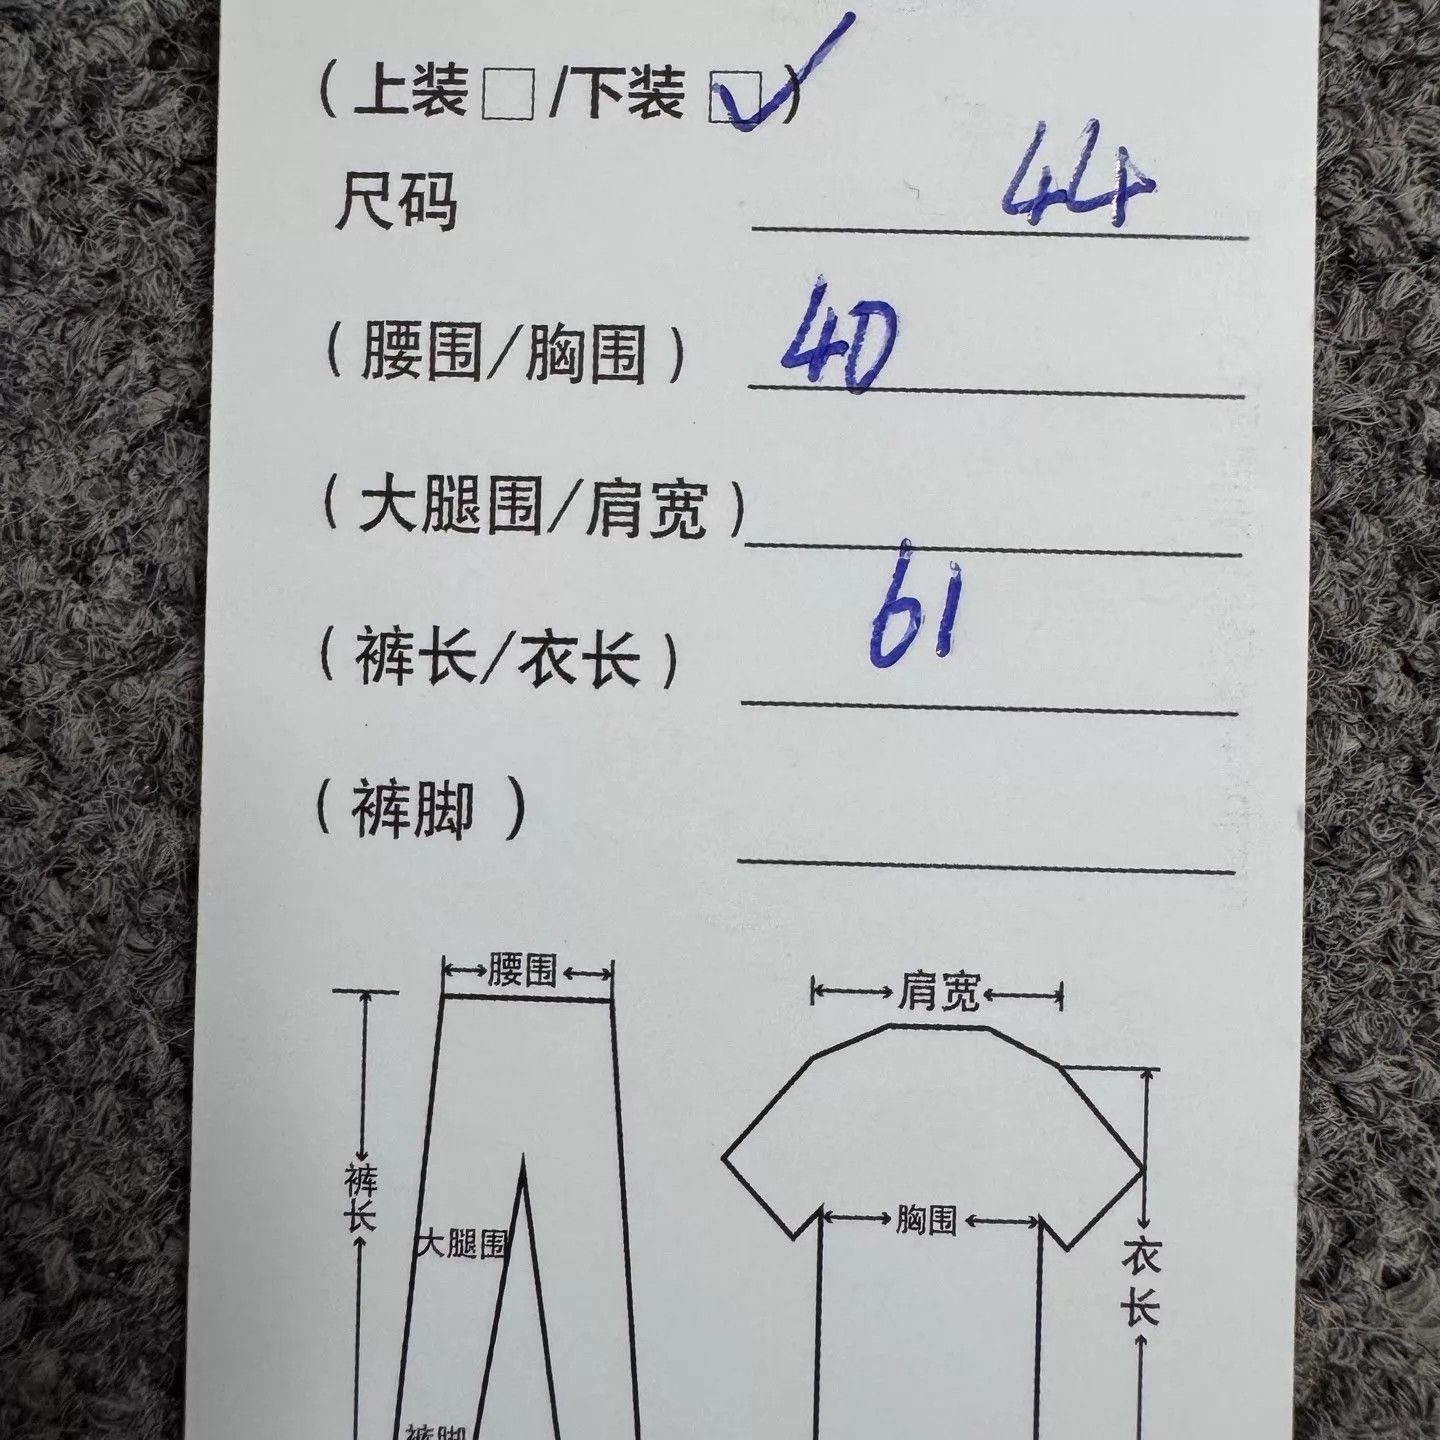 (上装□/下装☑)
尺码 44
(腰围/胸围) 40
(大腿围/肩宽)
(裤长/衣长) 61
(裤脚)
腰围
肩宽
裤长
大腿围
胸围
衣长
裤脚